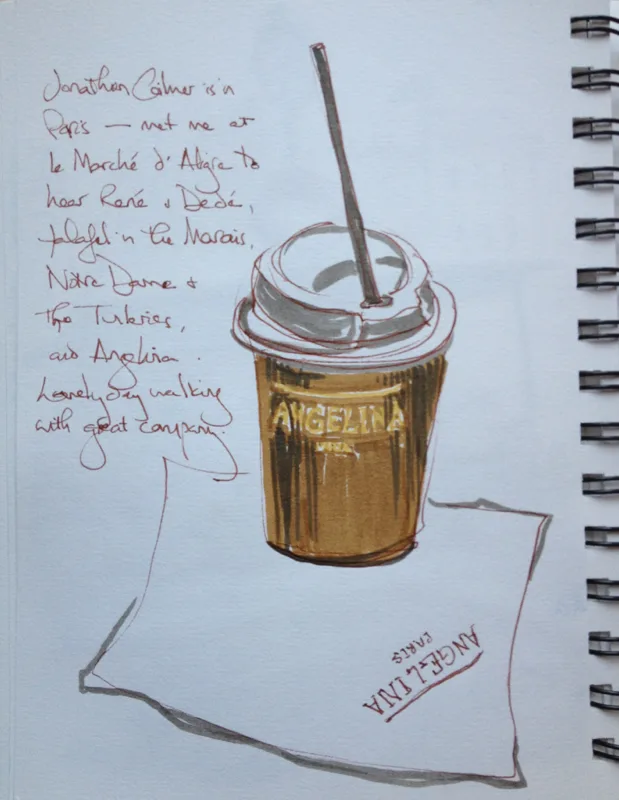 Jonathan Colmer is in
Paris — met me at
le Marché d'Aligre to
hear René & Dedé,
falafel in the Marais,
Notre Dame &
the Tuileries,
and Angelina.
Lovely day walking
with great company.
ANGELINA
PARIS
ANGELINA
PARIS